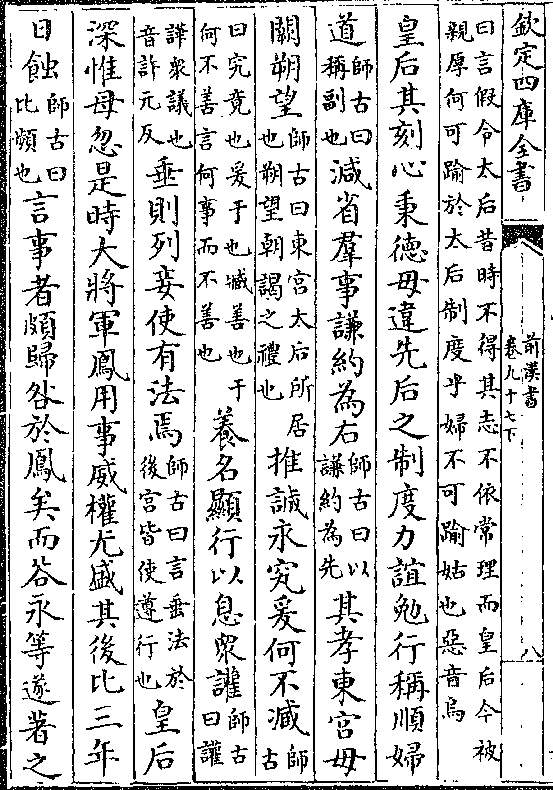 欽定四庫全書
前漢書
卷九十七下
八
曰言假令太后昔時不得其志不依常理而皇后今被
親厚何可踰於太后制度乎婦不可踰姑也惡音烏
皇后其刻心秉德毋違先后之制度力誼勉行稱順婦
道師古曰稱副也減省羣事謙約為右師古曰以謙約為先其孝東宫毋
闕朔望師古曰東宫太后所居也朔望朝謁之禮也推誠永究爰何不臧師古
曰究竟也爰于也臧善也于何不善言何事而不善也養名顯行以息衆讙師古曰讙
譁衆議也音許元反垂則列妾使有法焉師古曰言垂法於後宫皆使遵行也皇后
深惟毋忽是時大將軍鳳用事威權尤盛其後比三年
日蝕師古曰比頻也言事者頗歸咎於鳳矣而谷永等遂著之